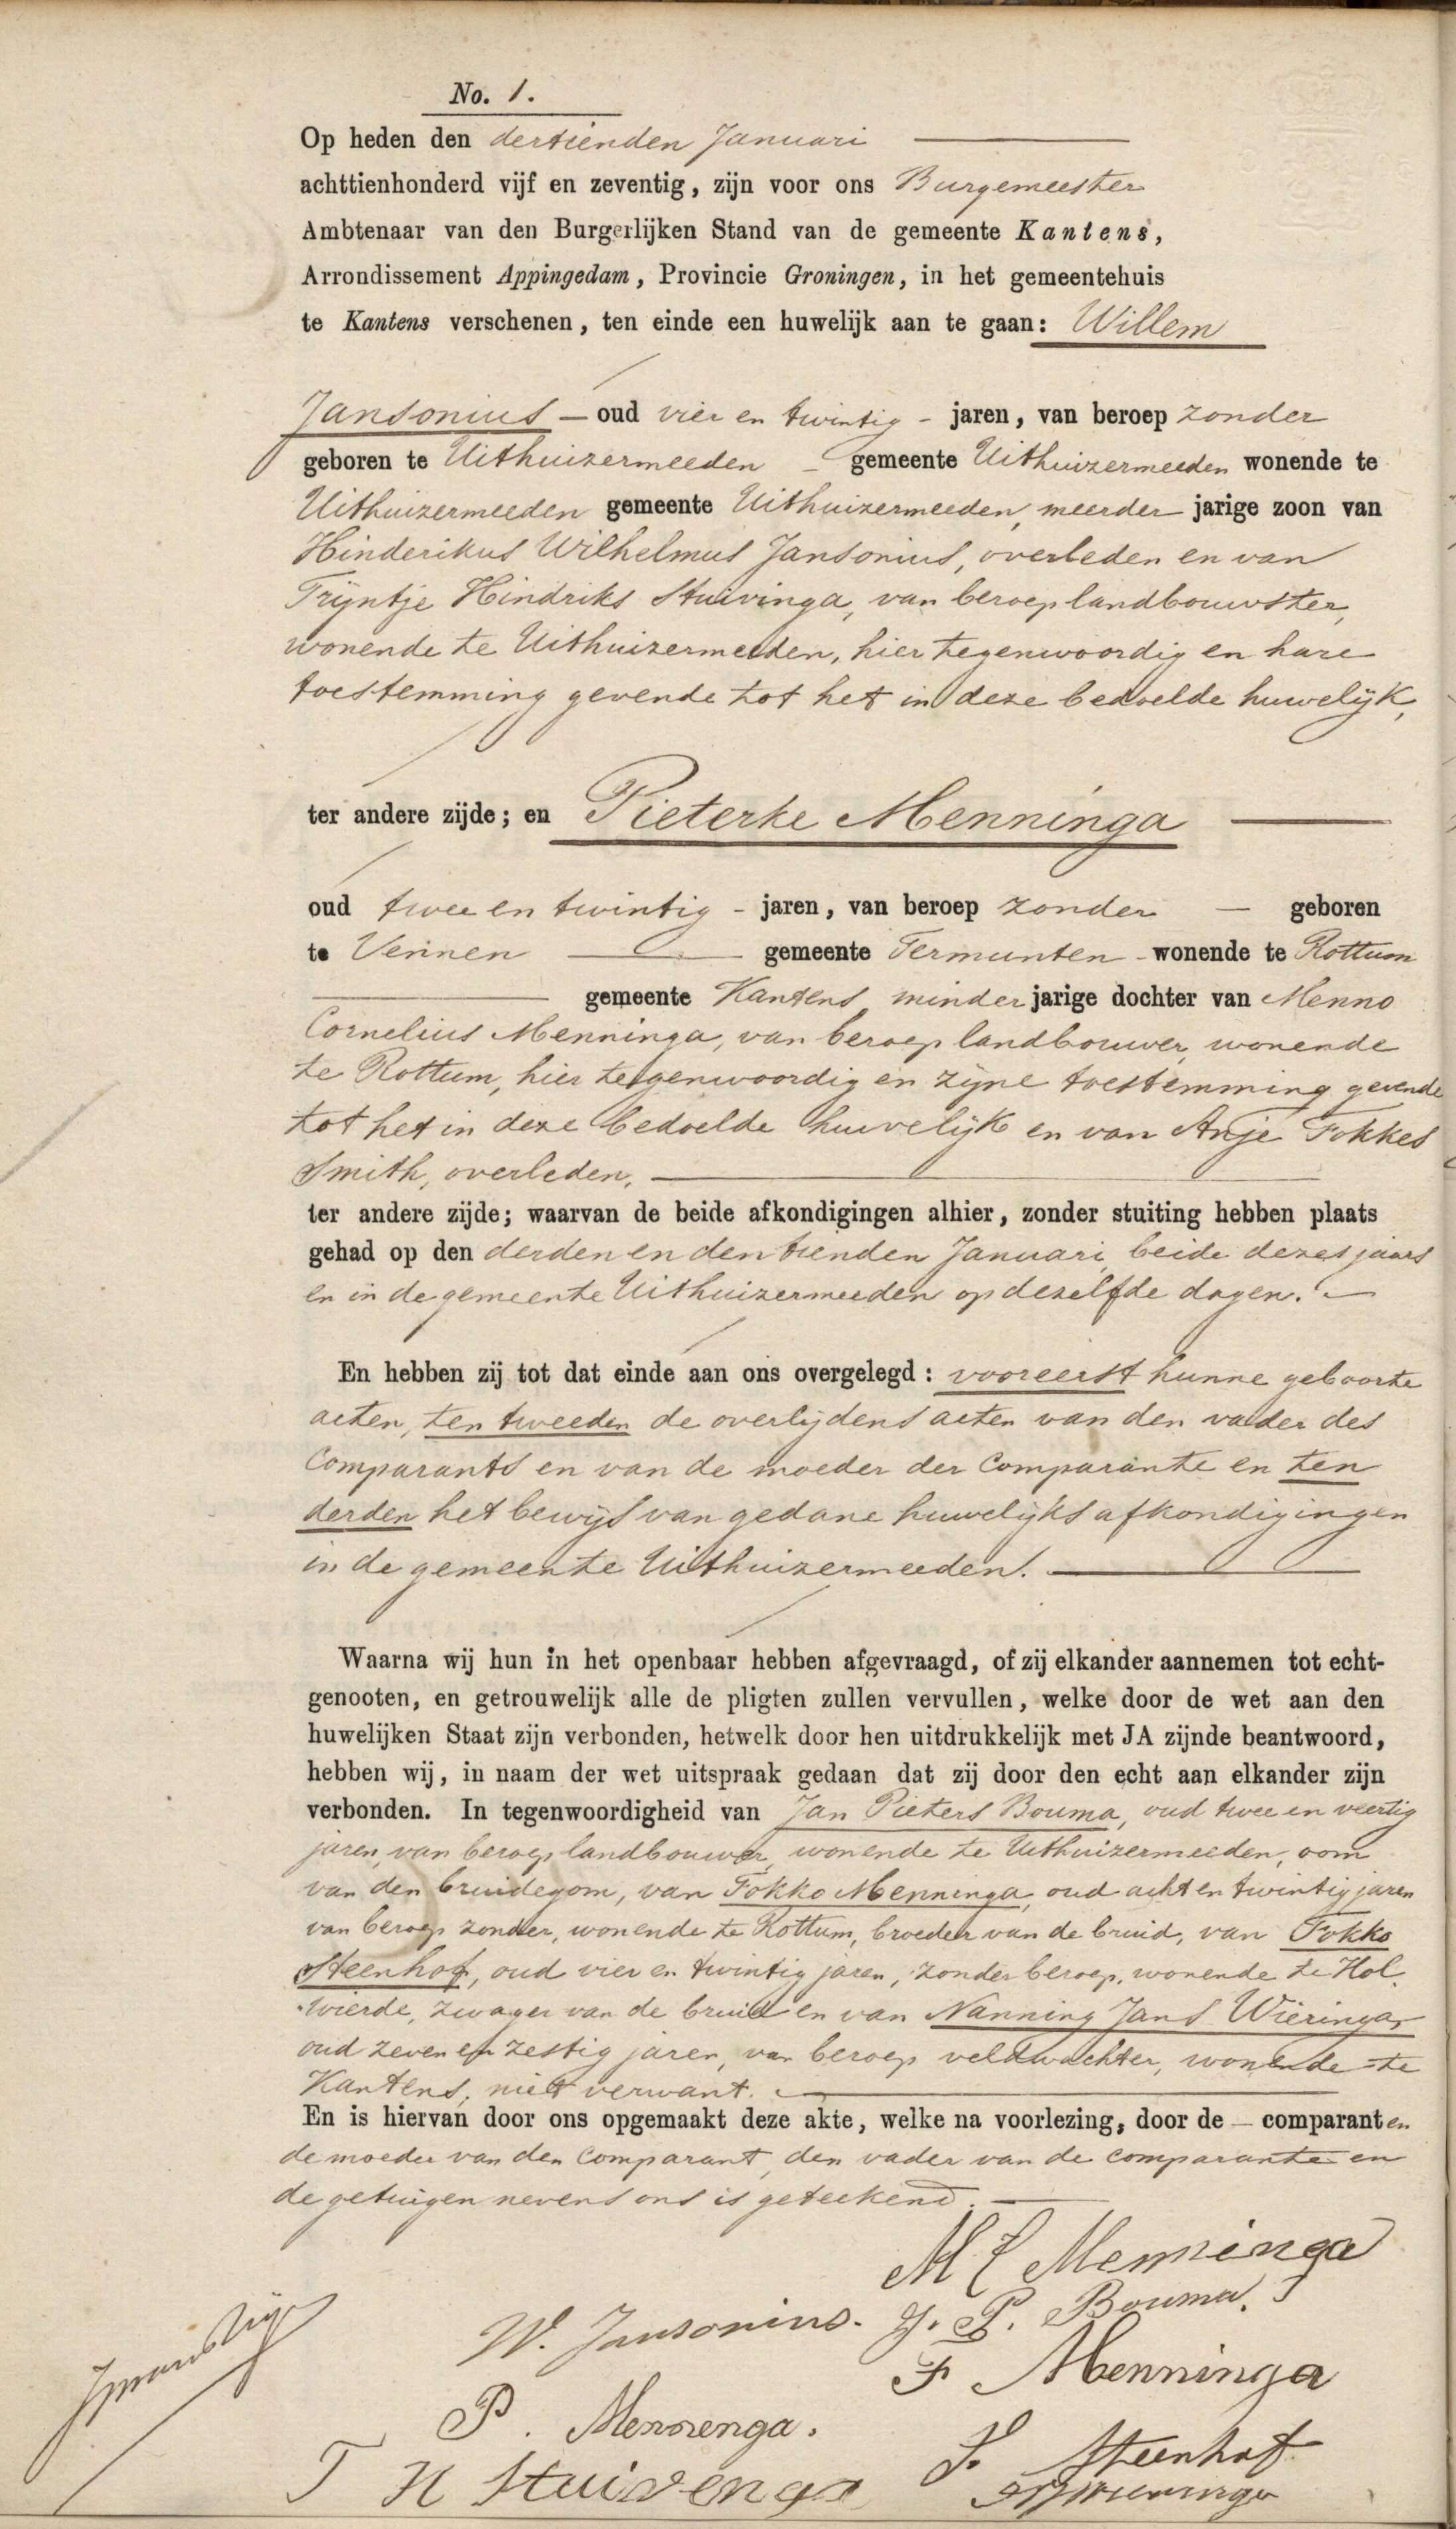 No. 1.
Op heden den dertienden Januari
achttienhonderd vijf en zeventig, zijn voor ons Burgemeester
Ambtenaar van den Burgerlijken Stand van de gemeente Kantens,
Arrondissement Appingedam, Provincie Groningen, in het gemeentehuis
te Kantens verschenen, ten einde een huwelijk aan te gaan: Willem
Jansonius – oud vier en twintig - jaren, van beroep zonder
geboren te Uithuizermeeden - gemeente Uithuizermeeden wonende te
Uithuizermeeden gemeente Uithuizermeeden, meerder jarige zoon van
Hinderikus Wilhelmus Jansonius, overleden en van
Trijntje Hindriks Stuivinga, van beroep landbouwster,
wonende te Uithuizermeeden, hier tegenwoordig en hare
toestemming gevende tot het in deze bedoelde huwelijk,
ter andere zijde; en Pieterke Menninga
oud twee en twintig - jaren, van beroep zonder — geboren
te Vennen — gemeente Termunten - wonende te Rottum
gemeente Kantens, minder jarige dochter van Menno
Cornelius Menninga, van beroep landbouwer, wonende
te Rottum, hier tegenwoordig en zijne toestemming gevende
tot het in deze bedoelde huwelijk en van Anje Fokkes
Smith, overleden,
ter andere zijde; waarvan de beide afkondigingen alhier, zonder stuiting hebben plaats
gehad op den derden en den tienden Januari, beide dezes jaars
en in de gemeente Uithuizermeeden op dezelfde dagen.
En hebben zij tot dat einde aan ons overgelegd: vooreerst hunne geboorte
acten, ten tweeden de overlijdens acten van den vader des
Comparants en van de moeder der Comparante en ten
derden het bewijs van gedane huwelijks afkondigingen
in de gemeente Uithuizermeeden.
Waarna wij hun in het openbaar hebben afgevraagd, of zij elkander aannemen tot echt-
genooten, en getrouwelijk alle de pligten zullen vervullen, welke door de wet aan den
huwelijken Staat zijn verbonden, hetwelk door hen uitdrukkelijk met JA zijnde beantwoord,
hebben wij, in naam der wet uitspraak gedaan dat zij door den echt aan elkander zijn
verbonden. In tegenwoordigheid van Jan Pieters Bouma, oud twee en veertig
jaren, van beroep landbouwer, wonende te Uithuizermeeden, oom
van den bruidegom, van Fokko Menninga, oud acht en twintig jaren
van beroep zonder, wonende te Rottum, broeder van de bruid, van Fokko
Steenhof, oud vier en twintig jaren, zonder beroep, wonende te Hol
wierde, zwager van de bruid en van Nanning Jans Wieringa,
oud zeven en zestig jaren, van beroep veldwachter, wonende te
Kantens, niet verwant.
En is hiervan door ons opgemaakt deze akte, welke na voorlezing, door de – comparanten
de moeder van den Comparant, den vader van de comparante en
de getuigen nevens ons is geteekend.
M C Menninga
W. Jansonius. J. P. Bouma.
F Menninga
P. Mennenga.
F. Steenhof
T H Stuivenga